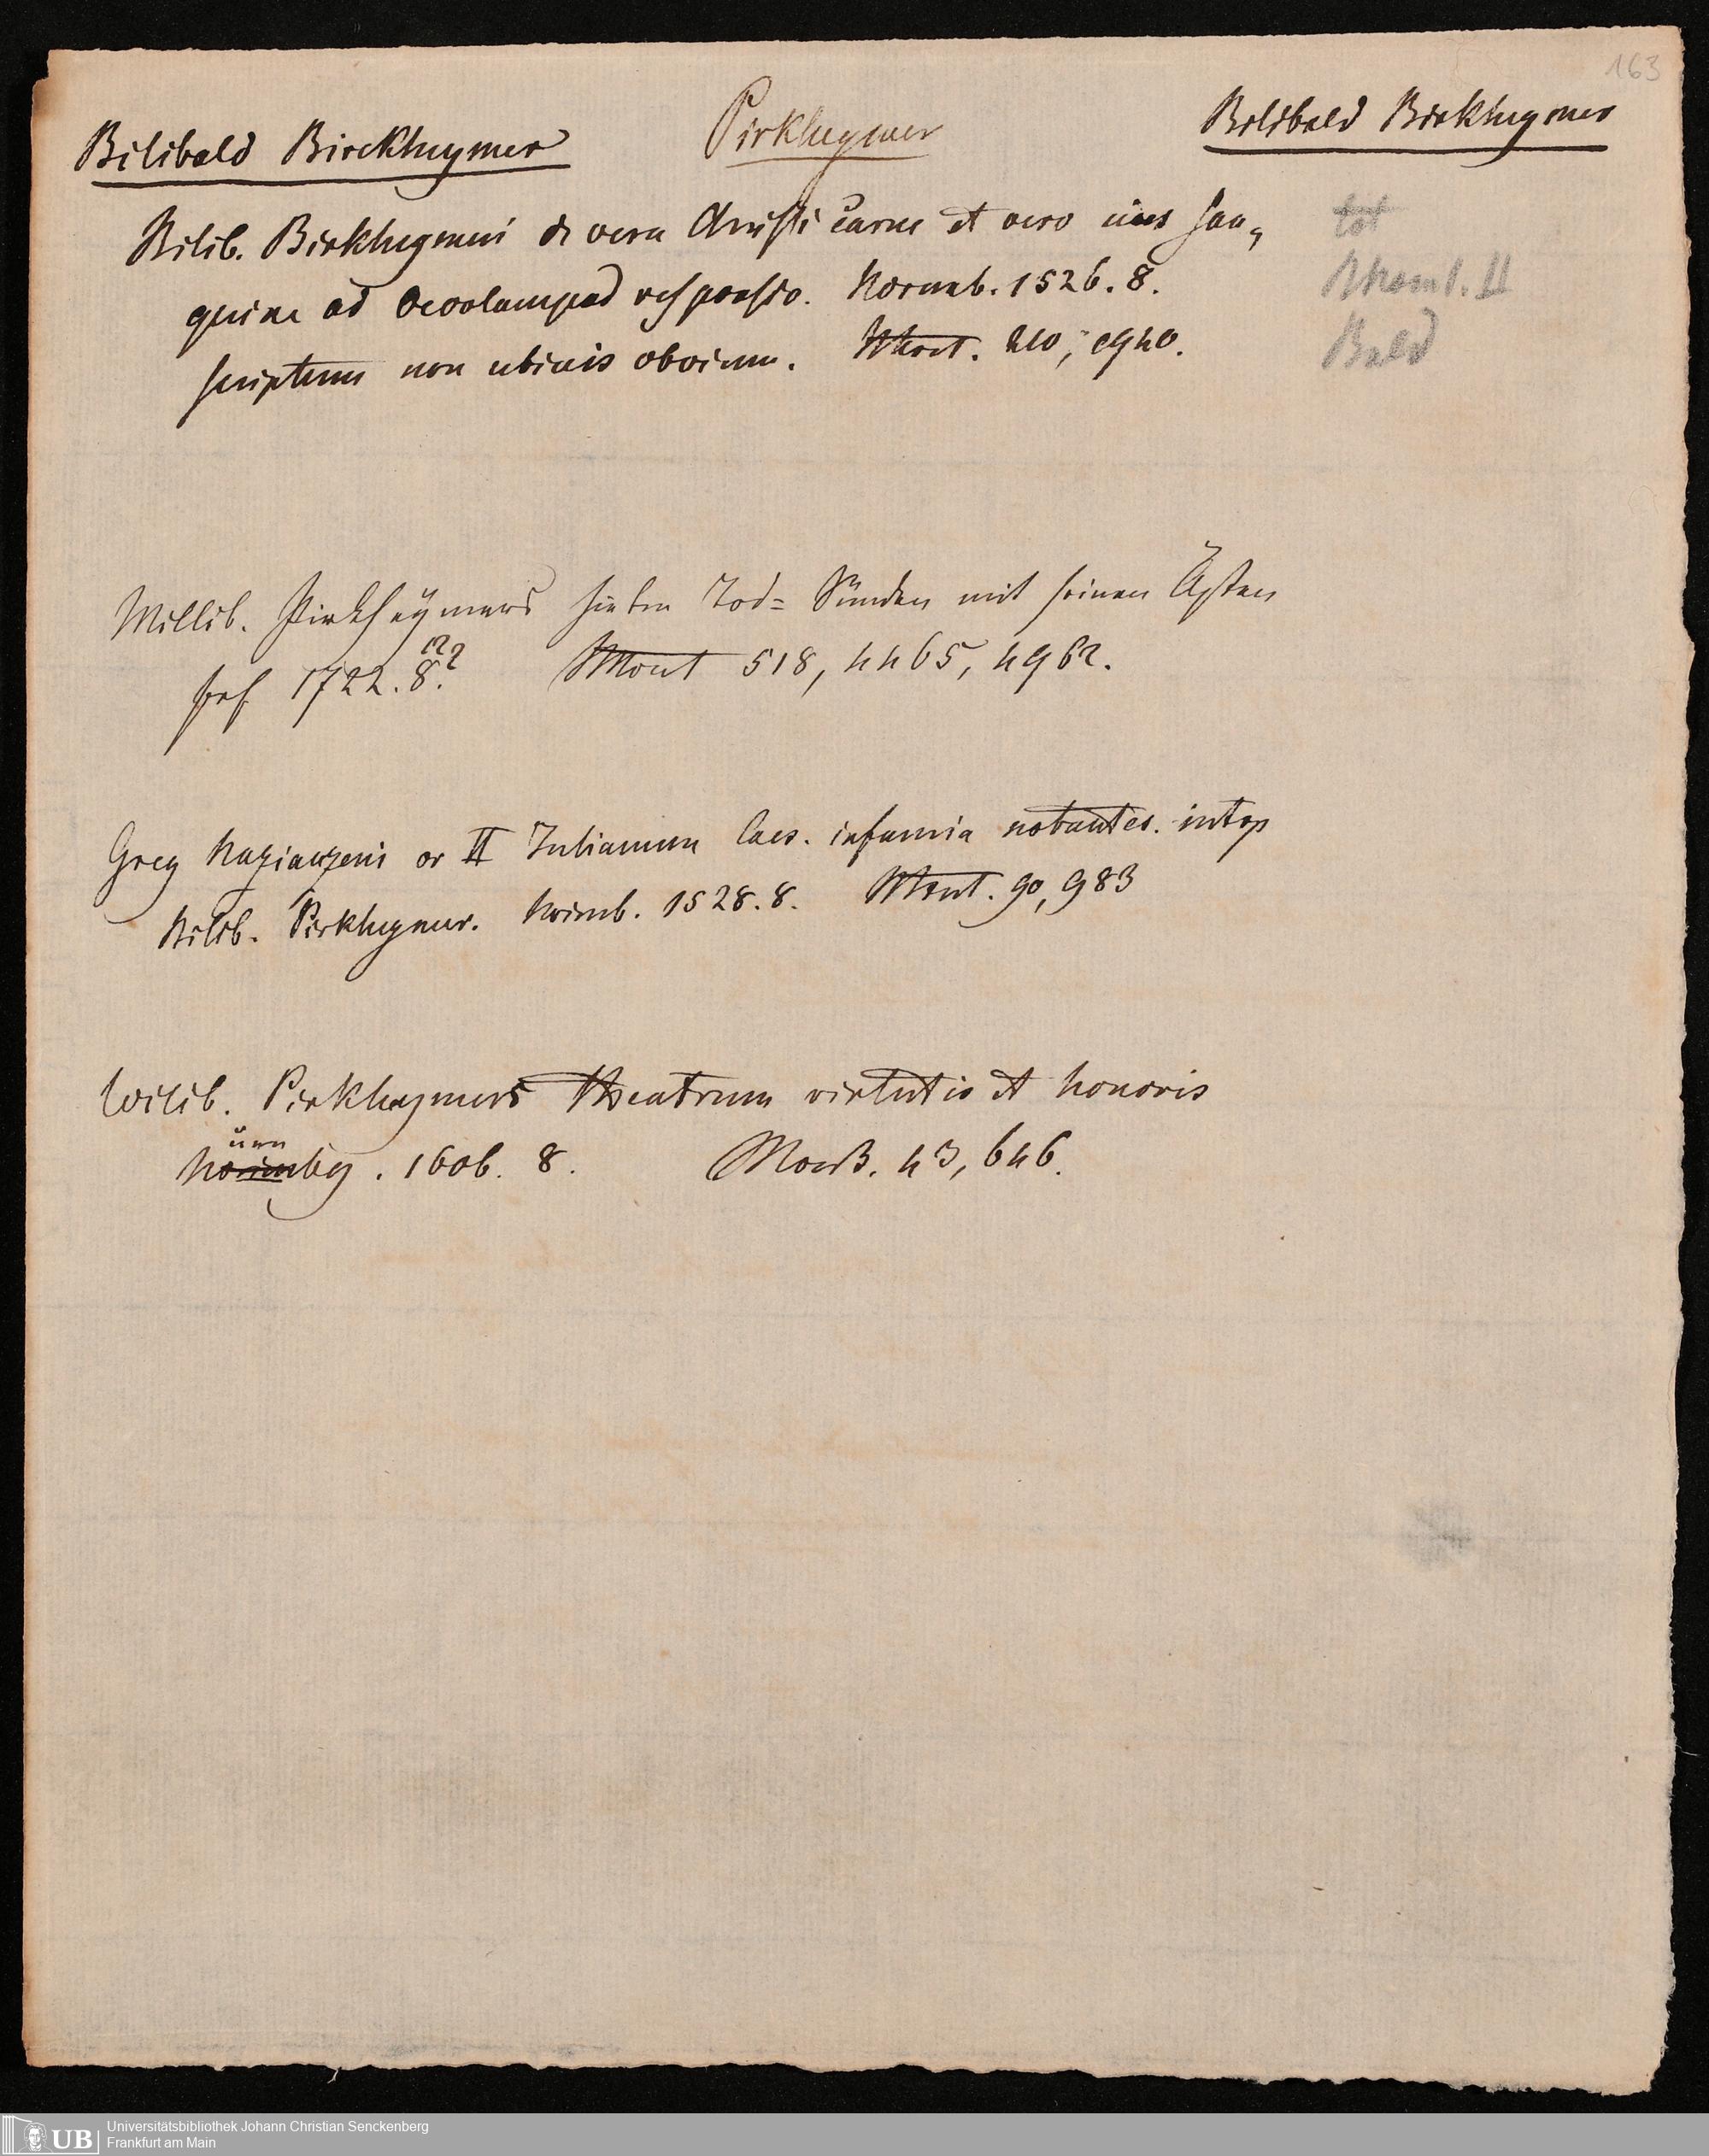 163
Bilibald Birckheymer
Pirkheymer
Bilibald Birkheymer
Bilib. Birkheymeri de vera Christi carne et vero eius san-
guine ad Oecolampad responsio. Normb. 1526. 8.
scriptum non ubiuis obvium. Mont. 210, 2940.
tot
II
Bald
Willib. Pirkheymers sieben Tod= Sünden mit seinen Ästen
1722. 8. Mont 518, 4465, 4962.
Greg Nazianzeni or II Julianum Caes. infamia notantes. intrp
Bilib. Pirkheymer. Norimb. 1528. 8. Mont. 90, 983
Wilib. Pirkheymers Theatrum virtutis et honoris
ürn
Norimbg. 1606. 8. 43, 646.
UB
Universitätsbibliothek Johann Christian Senckenberg
Frankfurt am Main